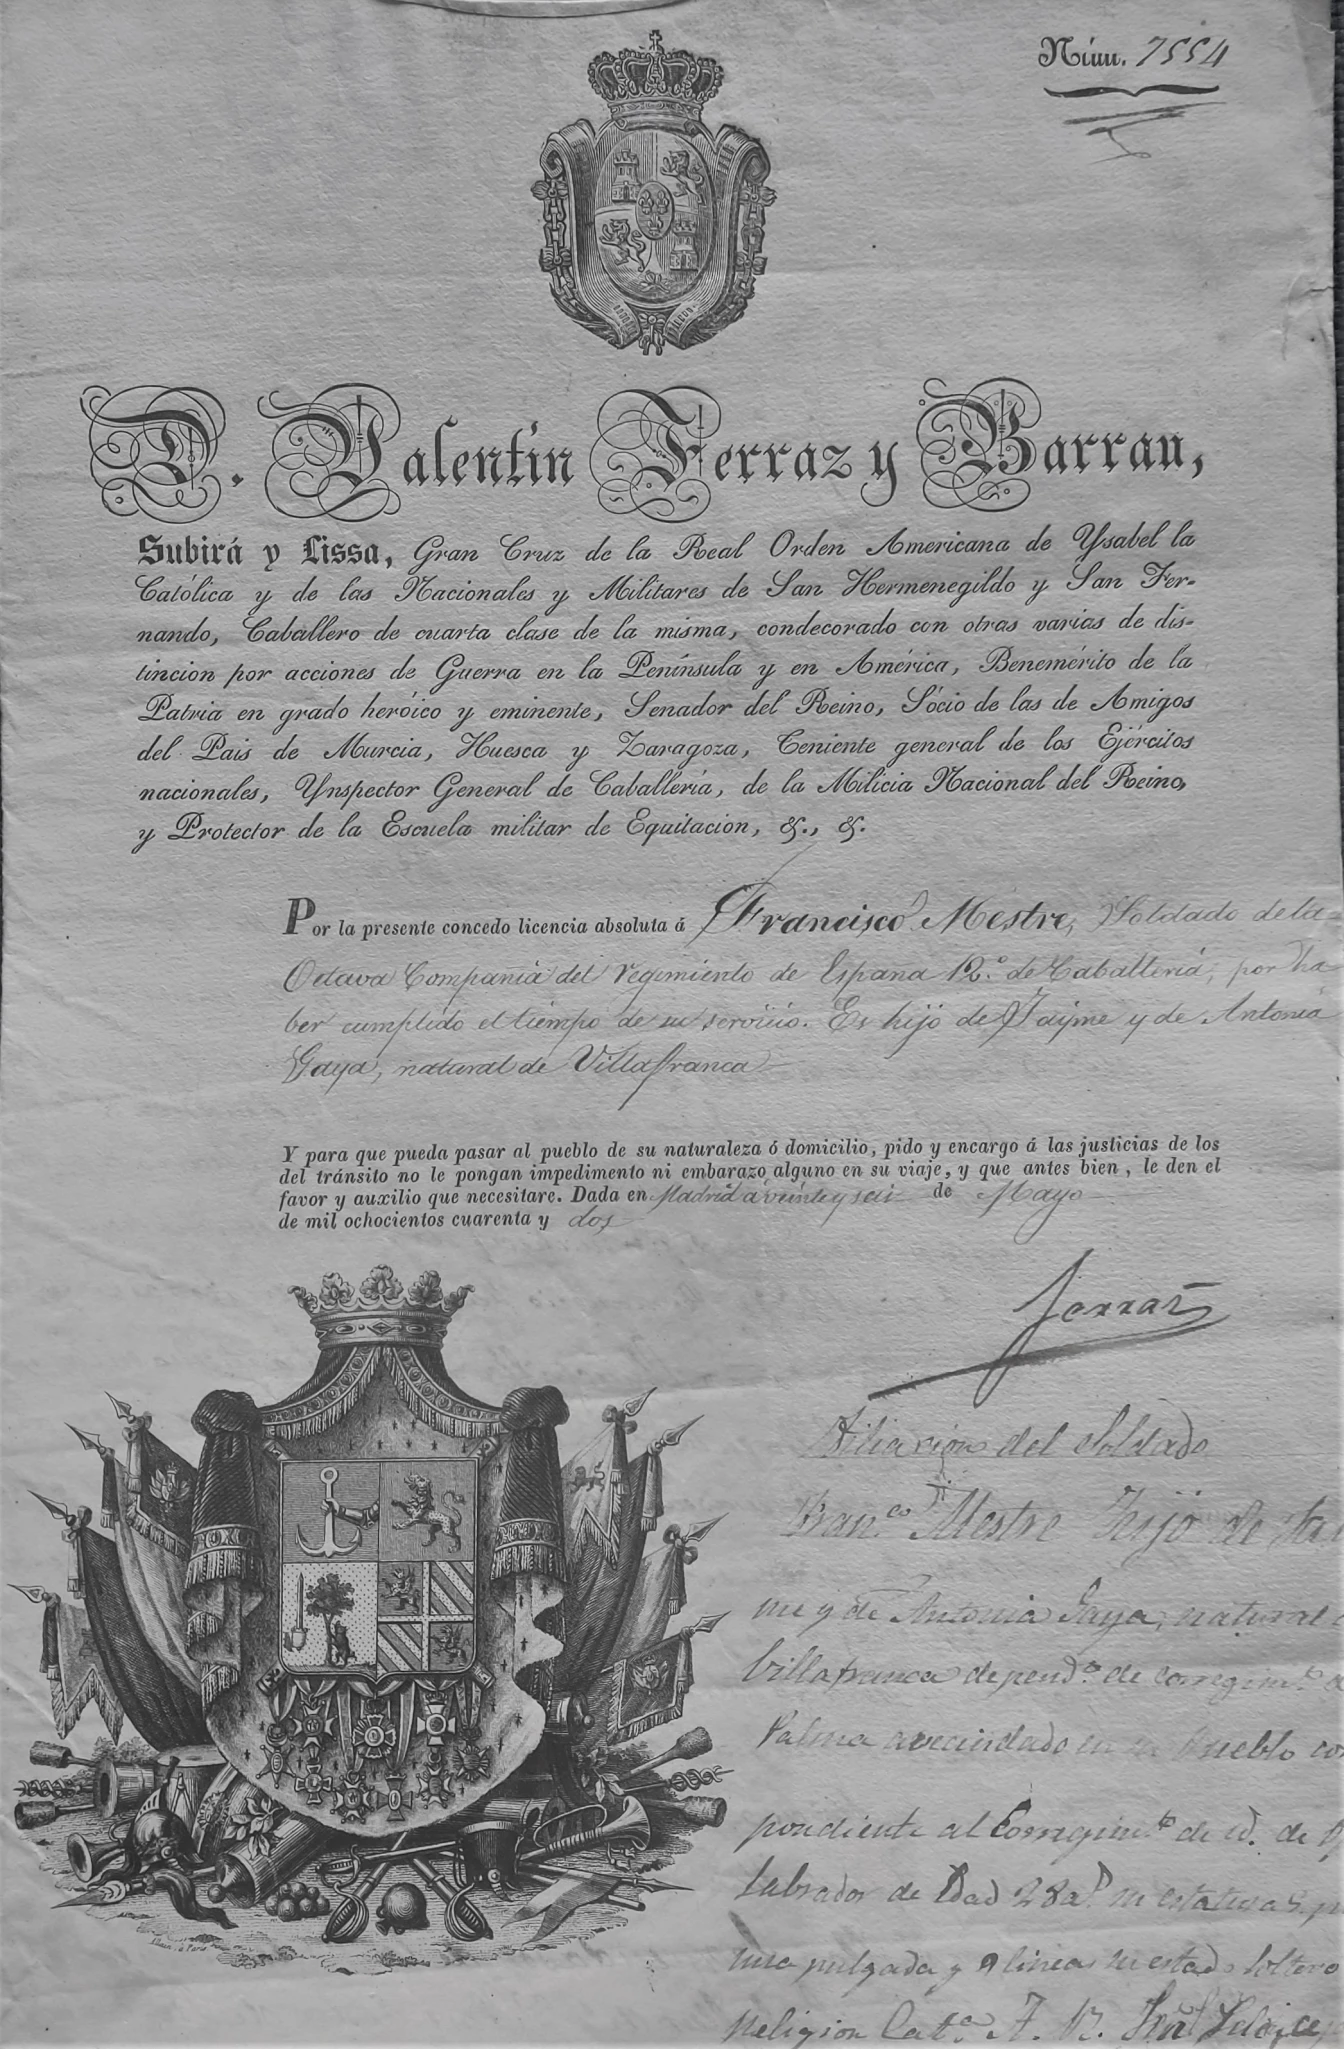 Núm. 7554
D. Valentín Ferraz y Barrau,
Subirá y Lissa, Gran Cruz de la Real Orden Americana de Ysabel la
Católica y de las Nacionales y Militares de San Hermenegildo y San Fer-
nando, Caballero de cuarta clase de la misma, condecorado con otras varias de dis-
tincion por acciones de Guerra en la Península y en América, Benemérito de la
Patria en grado heróico y eminente, Senador del Reino, Sócio de las de Amigos
del Pais de Murcia, Huesca y Zaragoza, Teniente general de los Ejércitos
nacionales, Ynspector General de Caballería, de la Milicia Nacional del Reino,
y Protector de la Escuela militar de Equitacion, &., &.
Por la presente concedo licencia absoluta á Francisco Mestre, Soldado de la
Octava Compañia del regimiento de España 12.º de Caballeria, por ha
ber cumplido el tiempo de su servicio. Es hijo de Jayme y de Antonia
Gaya, natural de Villafranca
Y para que pueda pasar al pueblo de su naturaleza ó domicilio, pido y encargo á las justicias de los
del tránsito no le pongan impedimento ni embarazo alguno en su viaje, y que antes bien, le den el
favor y auxilio que necesitare. Dada en Madrid á veinte y seis de Mayo
de mil ochocientos cuarenta y dos
Ferraz
Filiacion del Soldado
Fran.co Mestre hijo de Ja
me y de Antonia Gaya, natural
Villafranca depend.te de corregim.to
Palma avecindado en su Pueblo co
pondiente al Corregim.to de id. de
labrador de Edad 28 a.s su estatura 5
una pulgada y 9 lineas su estado Soltero
Religion Cat.ca A. R.